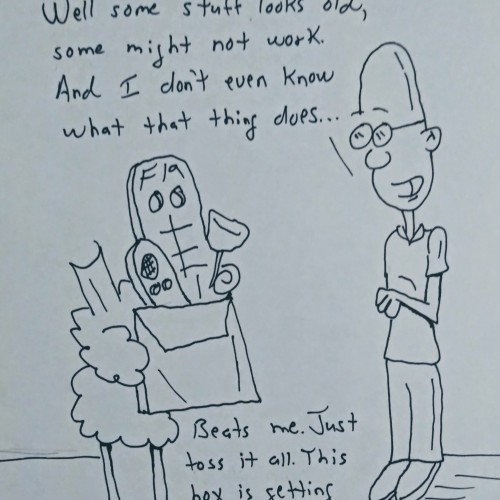 Well some stuff looks old,
some might not work.
And I don't even know
what that thing does...
Beats me. Just
toss it all. This
box is getting